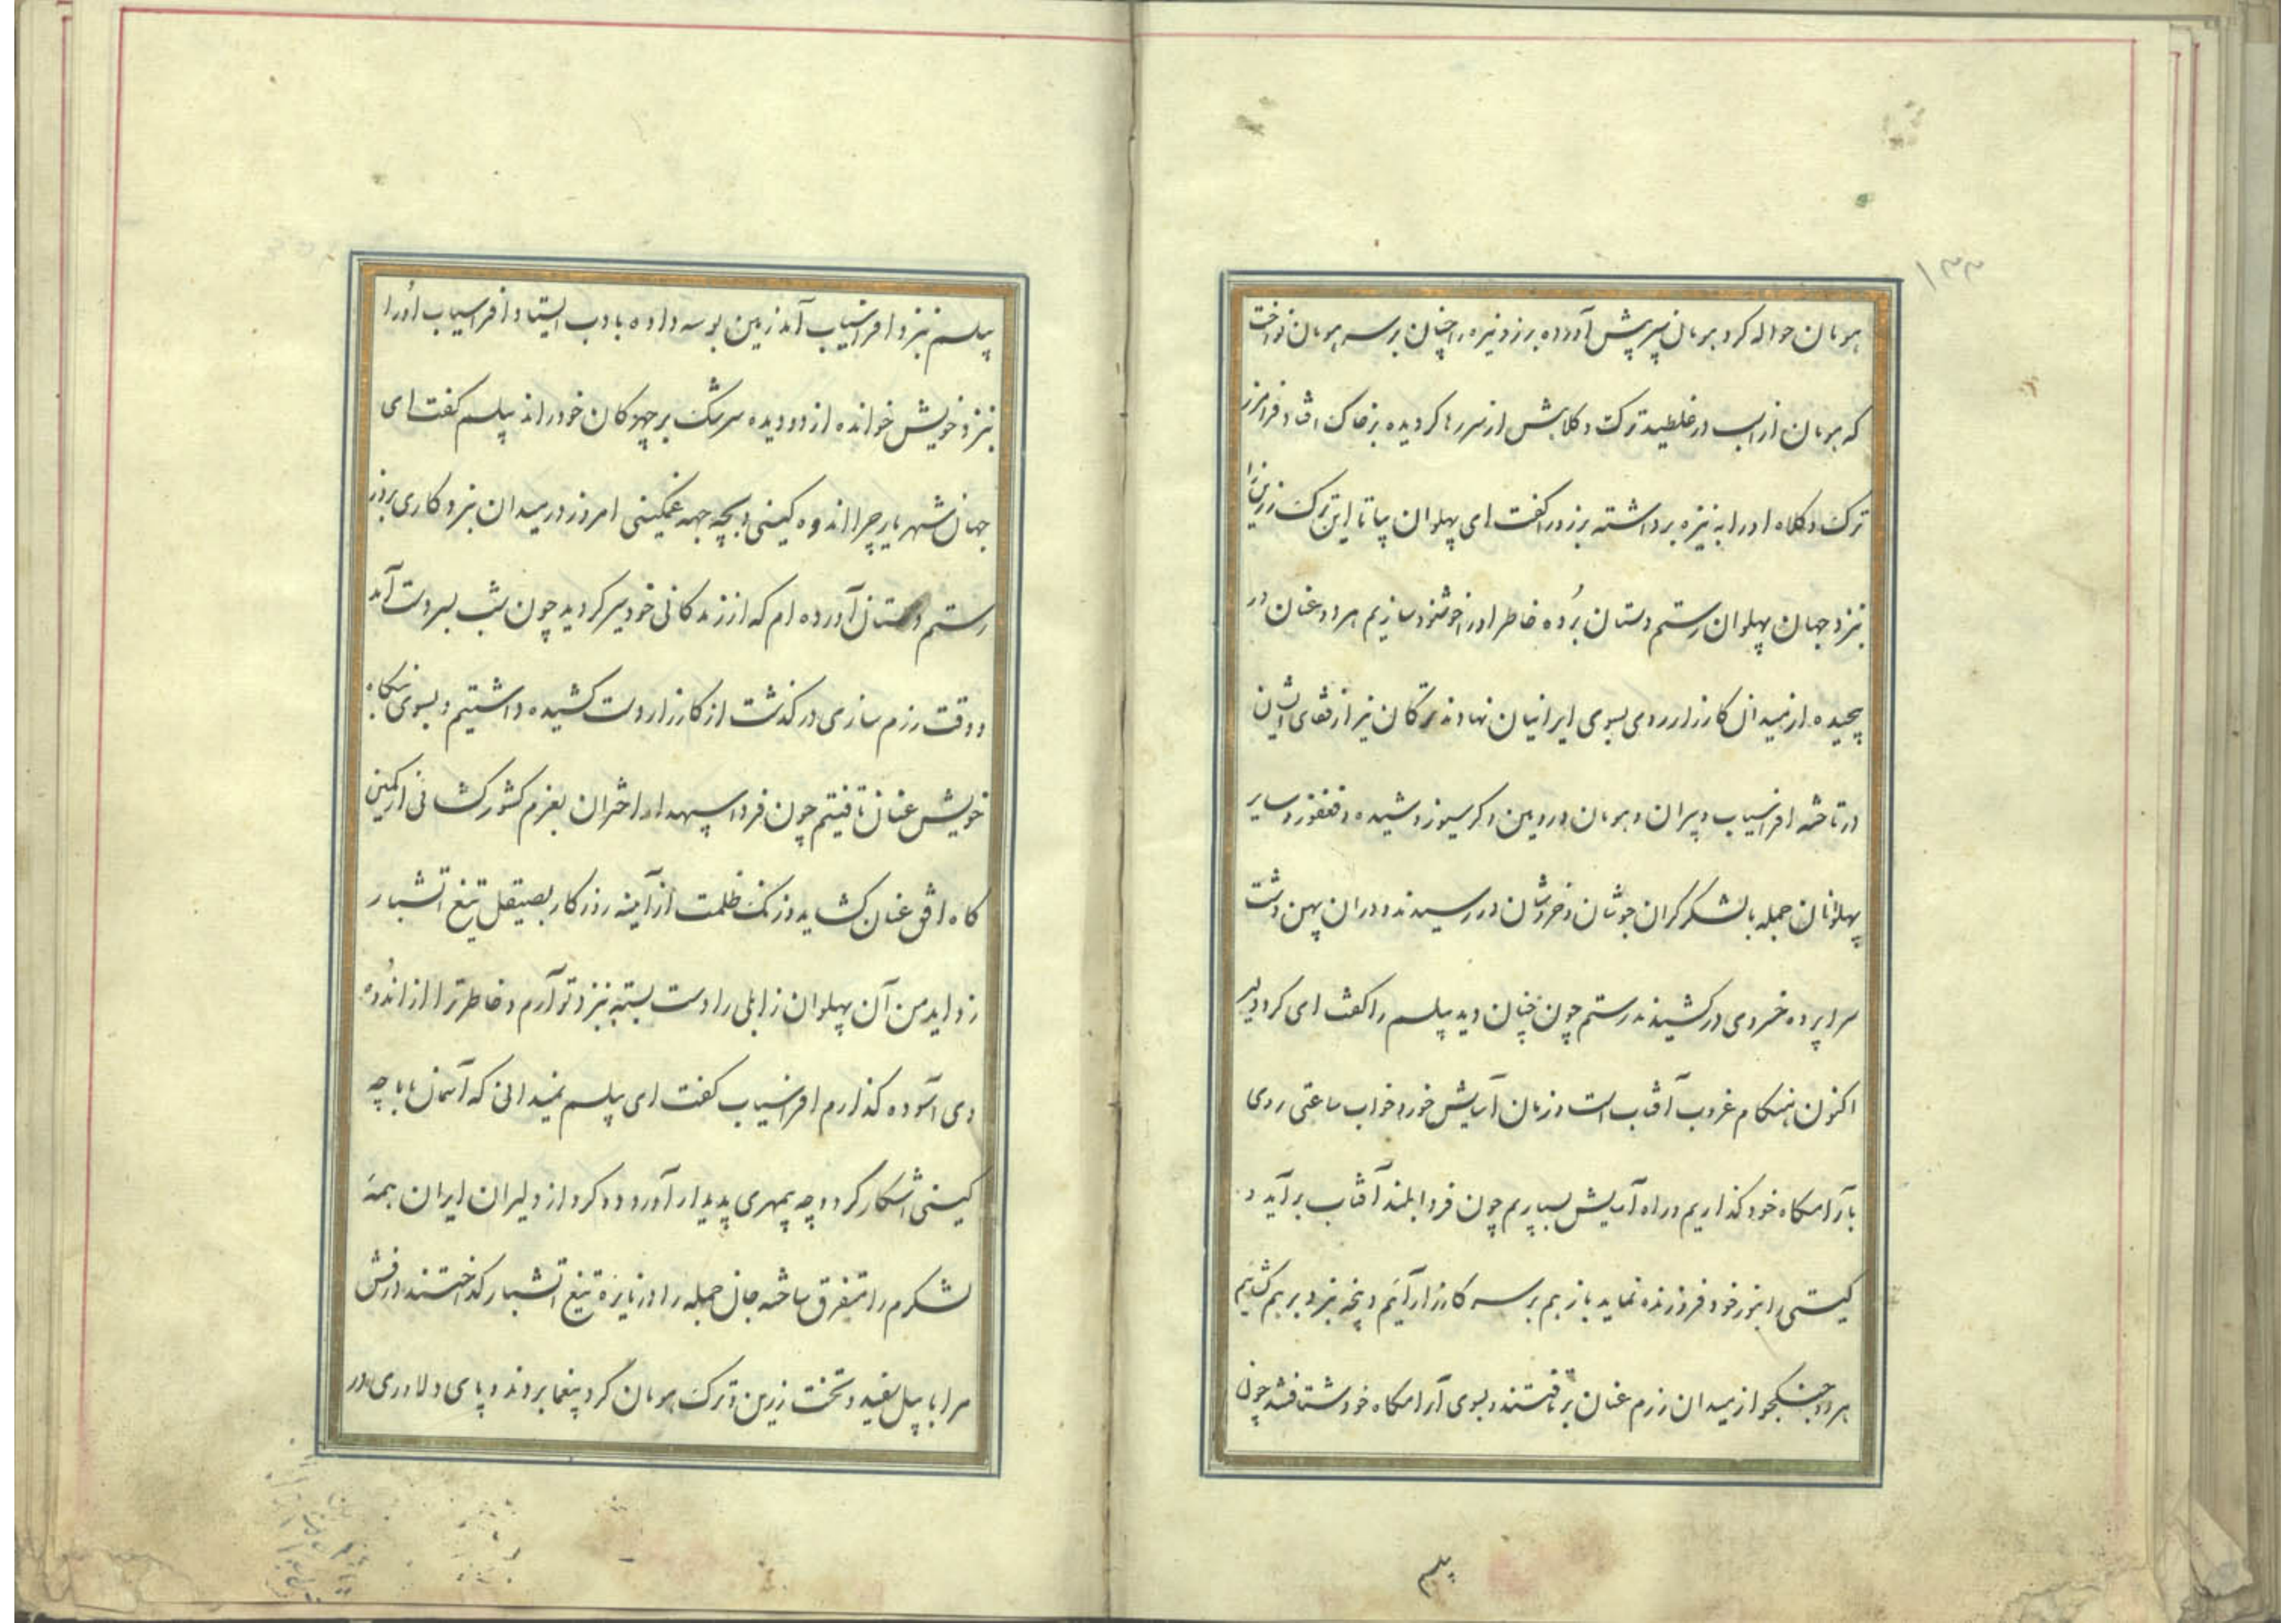 ۱۳۳
هومان حواله کرد هومان سپر پیش آورده برزو نیزه را چنان بر سر هومان نواخت
که هومان از اسب در غلطید ترک و کلاهش از سر رها کردیده بر خاک افتاد فرامرز
ترک و کلاه او را به نیزه برداشته برزو را کفت ای پهلوان بیا تا این ترک زرین را
نزد جهان پهلوان رستم دستان برُده خاطر او را خوشنود سازیم هر دو عنان در
پیچیده از میدان کارزار روی بسوی ایرانیان نهادند ترکان نیز از قفای ایشان
در تاخته افراسیاب و پیران و هومان و رویین و کرسیوز و شیده و فغفور و سایر
پهلوانان جمله با لشکر کران جوشان و خروشان در رسیدند و در ان پهن دشت
سراپرده خسروی در کشیدند رستم چون چنان دید پیلسم را کفت ای کرد دلیر
اکنون هنکام غروب آفتاب است و زمان آسایش خورد و خواب ساعتی روی
بآرامکاه خود کذاریم و راه آسایش بسپاریم چون فردا بلند آفتاب برآید و
کیتی را بنور خود فروزنده نماید باز هم بر سر کارزار آئیم و پنجه نبرد بر هم کشائیم
هر دو جنکجو از میدان رزم عنان برتافتند و بسوی آرامکاه خود شتافتند چون
پیلسم
پیلسم نزد افراسیاب آمد زمین بوسه داده بادب ایستاد افراسیاب اوُرا
نزد خویش خوانده از دو دیده سرشک بر چهرکان خود راند پیلسم کفت ای
جهان شهریار چرا اندوه کینی و بچه جهه غمکینی امروز در میدان نبرد کاری بروز
رستم دستان آورده ام که از زندکانی خود سیر کردید چون شب بسر دست آمد
و وقت رزم سازی در کذشت از کارزار دست کشیده داشتیم و بسوی بنکاه
خویش عنان تافتیم چون فردا سپهدار اختران بعزم کشور کشائی از کمین
کاه افق عنان کشاید و زنک ظلمت از آینه روزکار بصیقل تیغ آتشبار
زداید من آن پهلوان زابلی را دست بسته نزد تو آرم و خاطر ترا از اندُوه
وی آسوده کذارم افراسیاب کفت ای پیلسم نمیدانی که آسمان با ما چه
کینی آشکار کرد و چه بیمهری پدیدار آورد دو کرد از دلیران ایران همهٔ
لشکرم را متفرق ساخته جان جمله را در نایرهٔ تیغ آتشبار کداختند درفش
مرا با پیل سفید و تخت زرین و ترک هومان کرد بیغما بردند و پای دلاوری در